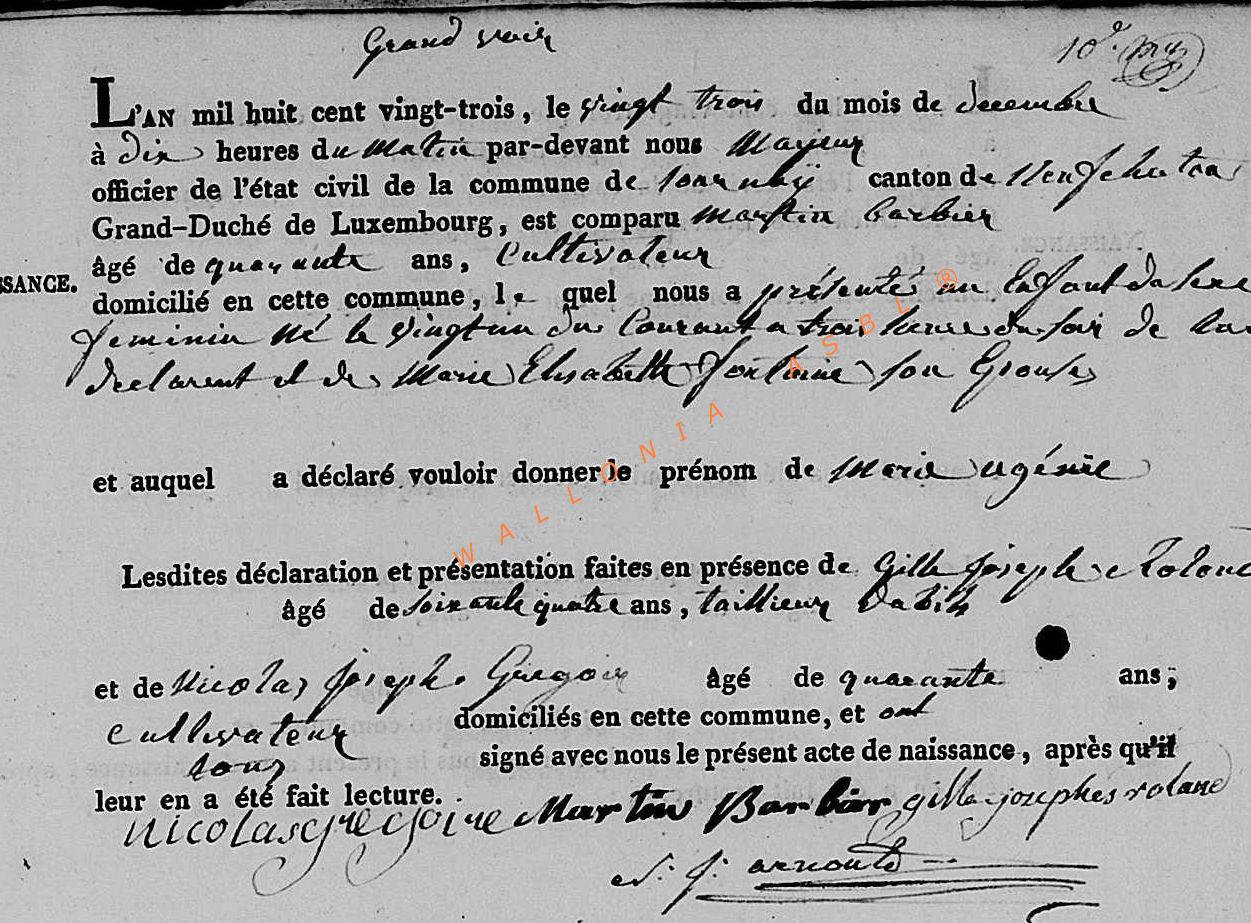 Grand voir
10e
L'AN mil huit cent vingt-trois, le vingt trois du mois de decembre
à dix heures du Matin par-devant nous Mayeur
officier de l'état civil de la commune de tournay canton de Neufchatea
Grand-Duché de Luxembourg, est comparu Martin Barbier
SSANCE.
âgé de quarante ans, Cultivateur
domicilié en cette commune, le quel nous a présenté un Enfant du sexe
feminin né le vingt un du Courant a trois heure du soir de lui
declarent et de Marie Elisabette fontaine son Epouse
et auquel a déclaré vouloir donner le prénom de Marie ugénie
Lesdites déclaration et présentation faites en présence de Gille joseph Roland
âgé de soixante quatre ans, taillieur dabits
et de Nicolas joseph Gregoir âgé de quarante ans;
Cultivateur domiciliés en cette commune, et ont
tous signé avec nous le présent acte de naissance, après qu'il
leur en a été fait lecture.
NICOLAS GREGOIRE Martin Barbier gille josephes roland
arnould
WALLONIA ASBL ®